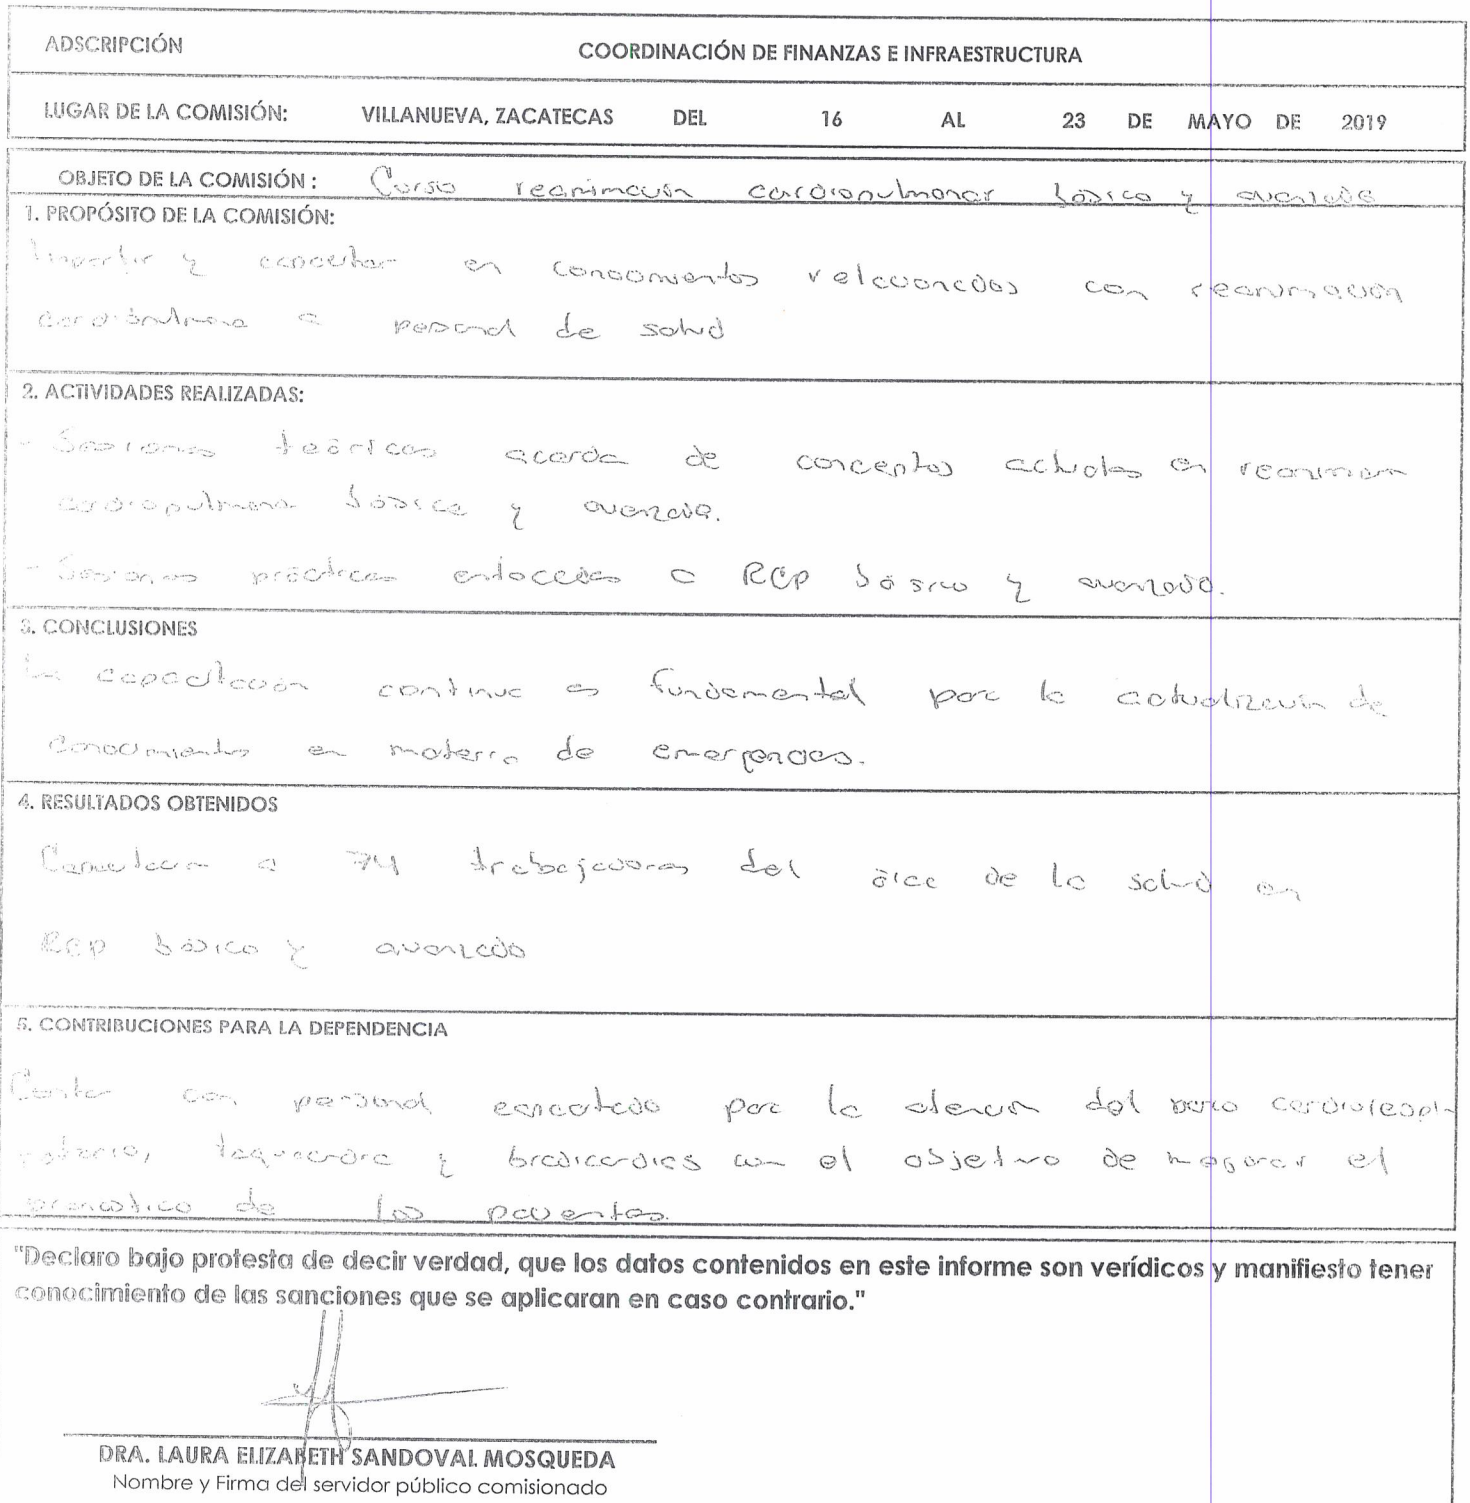 ADSCRIPCIÓN COORDINACIÓN DE FINANZAS E INFRAESTRUCTURA
LUGAR DE LA COMISIÓN: VILLANUEVA, ZACATECAS DEL 16 AL 23 DE MAYO DE 2019
OBJETO DE LA COMISIÓN : Curso reanimación cardiopulmonar básico y avanzado
1. PROPÓSITO DE LA COMISIÓN:
Impartir y capacitar en conocimientos relacionados con reanimación
cardiopulmonar a personal de salud
2. ACTIVIDADES REALIZADAS:
- Sesiones teóricas acerca de conceptos actuales en reanimación
cardiopulmonar básica y avanzada.
- Sesiones prácticas enfocadas a RCP básico y avanzado.
3. CONCLUSIONES
La capacitación continua es fundamental para la actualización de
conocimientos en materia de emergencias.
4. RESULTADOS OBTENIDOS
a 74 trabajadores del área de la salud en
RCP básico y avanzado
5. CONTRIBUCIONES PARA LA DEPENDENCIA
Contar con personal capacitado para la atención del paro cardiorespi-
ratorio, y bradicardias con el objetivo de mejorar el
pronóstico de los pacientes.
"Declaro bajo protesta de decir verdad, que los datos contenidos en este informe son verídicos y manifiesto tener
conocimiento de las sanciones que se aplicaran en caso contrario."
DRA. LAURA ELIZABETH SANDOVAL MOSQUEDA
Nombre y Firma del servidor público comisionado